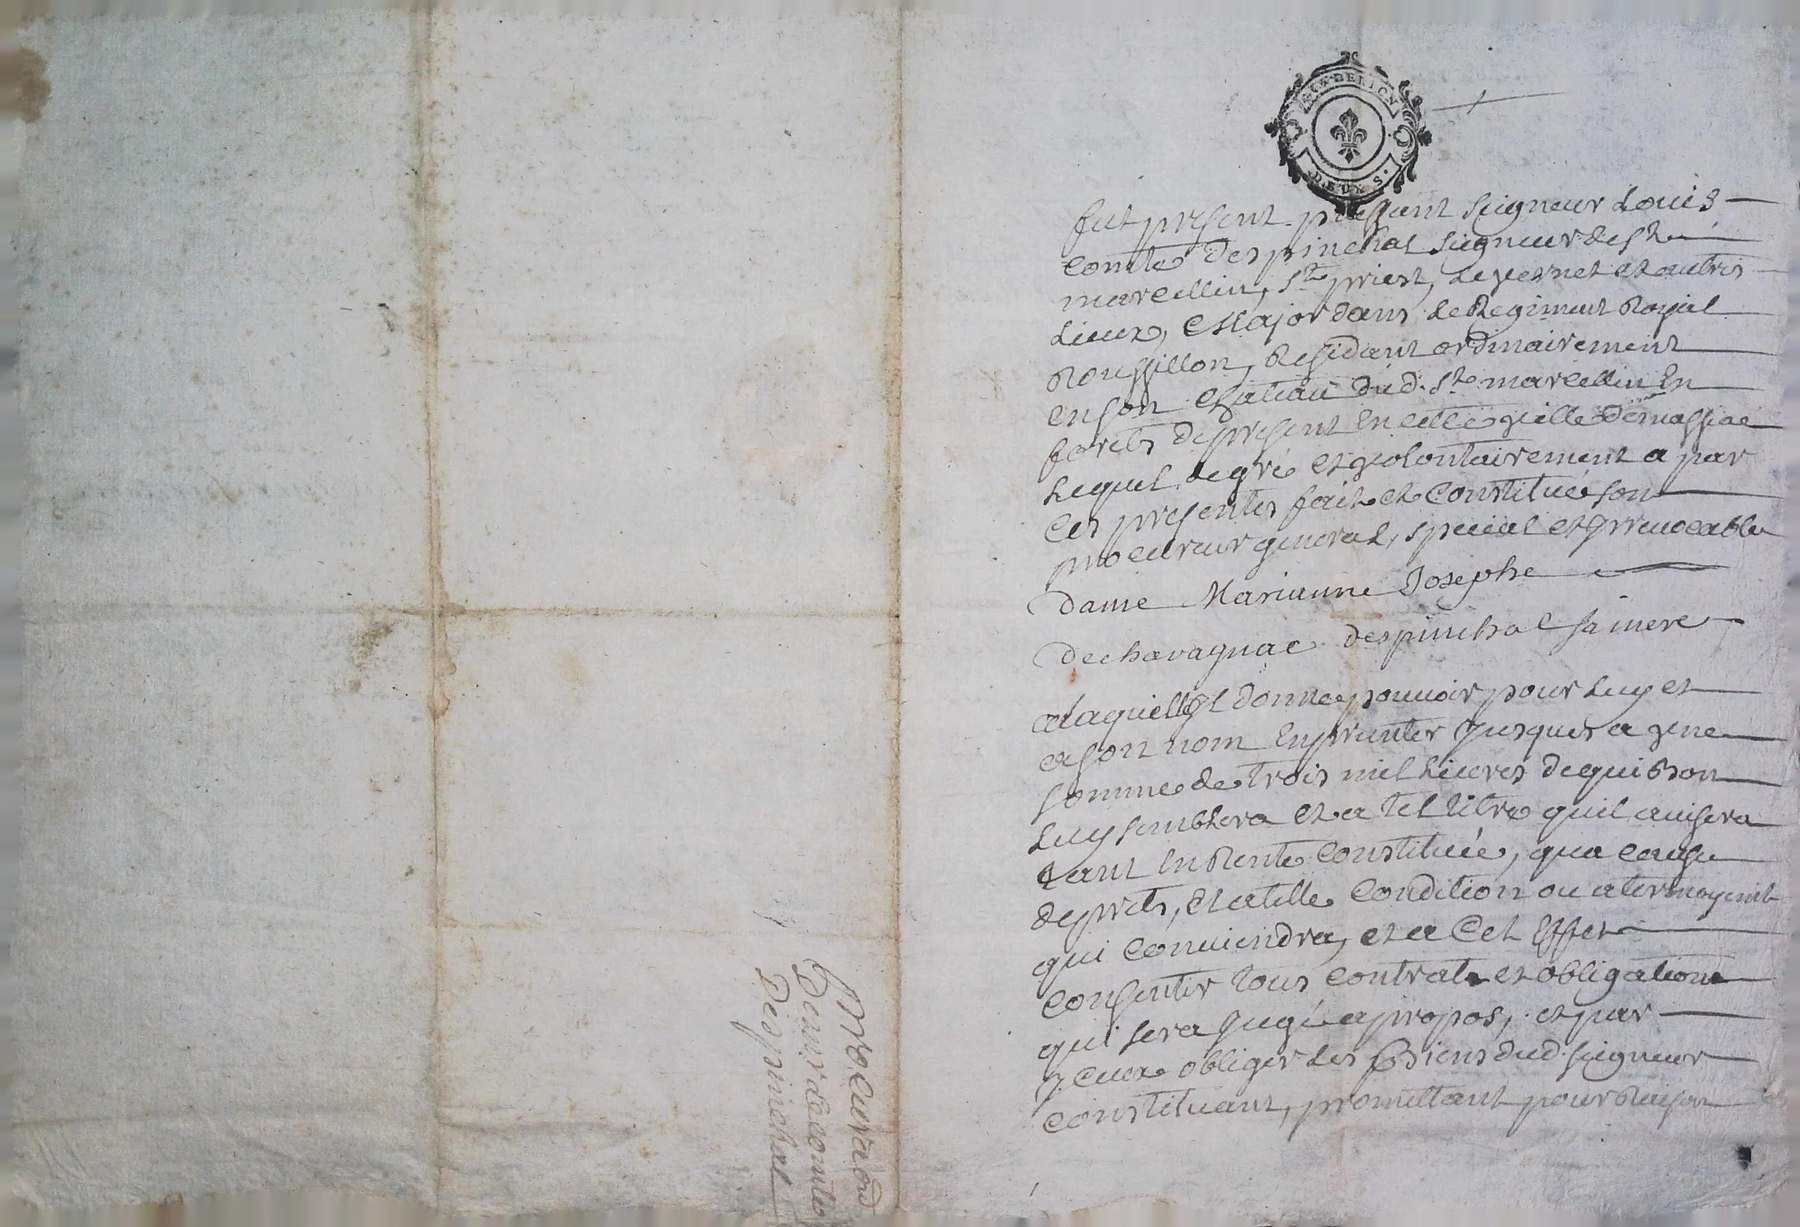 TABELLION
DEUX S.
fut present puissant seigneur Louis
comte despinchal seigneur de St
marcellin, St priest, le vernet et autres
Lieux, Major dans le Regiment Royal
Roussillon, Residant ordinairement
en son chateau dud. St marcellin En
forets de present En cette ville de massiac
Lequel de gré et volontairement a par
ces presentes fait et Constitué son
procureur general, special et Irrevocable
dame Marianne Josephe
de chavagnac despinchal sa mere
a laquelle Il donne pouvoir pour luy et
a son nom Enprunter Jusques a une
somme de trois mil Livres de qui bon
luy semblera et a tel titre quil avisera
tant En Rente Constituée, qua cause
de prets, et a telle Condition ou atermoyemt
qui conviendra, et a Cet Effet
consentir tous contrats et obligations
qui sera Jugé a propos, et par
Iceux obliger les Biens dud. seigneur
constituant, promettant pour Raison
procura͠on
De mr le comte
Despinchal